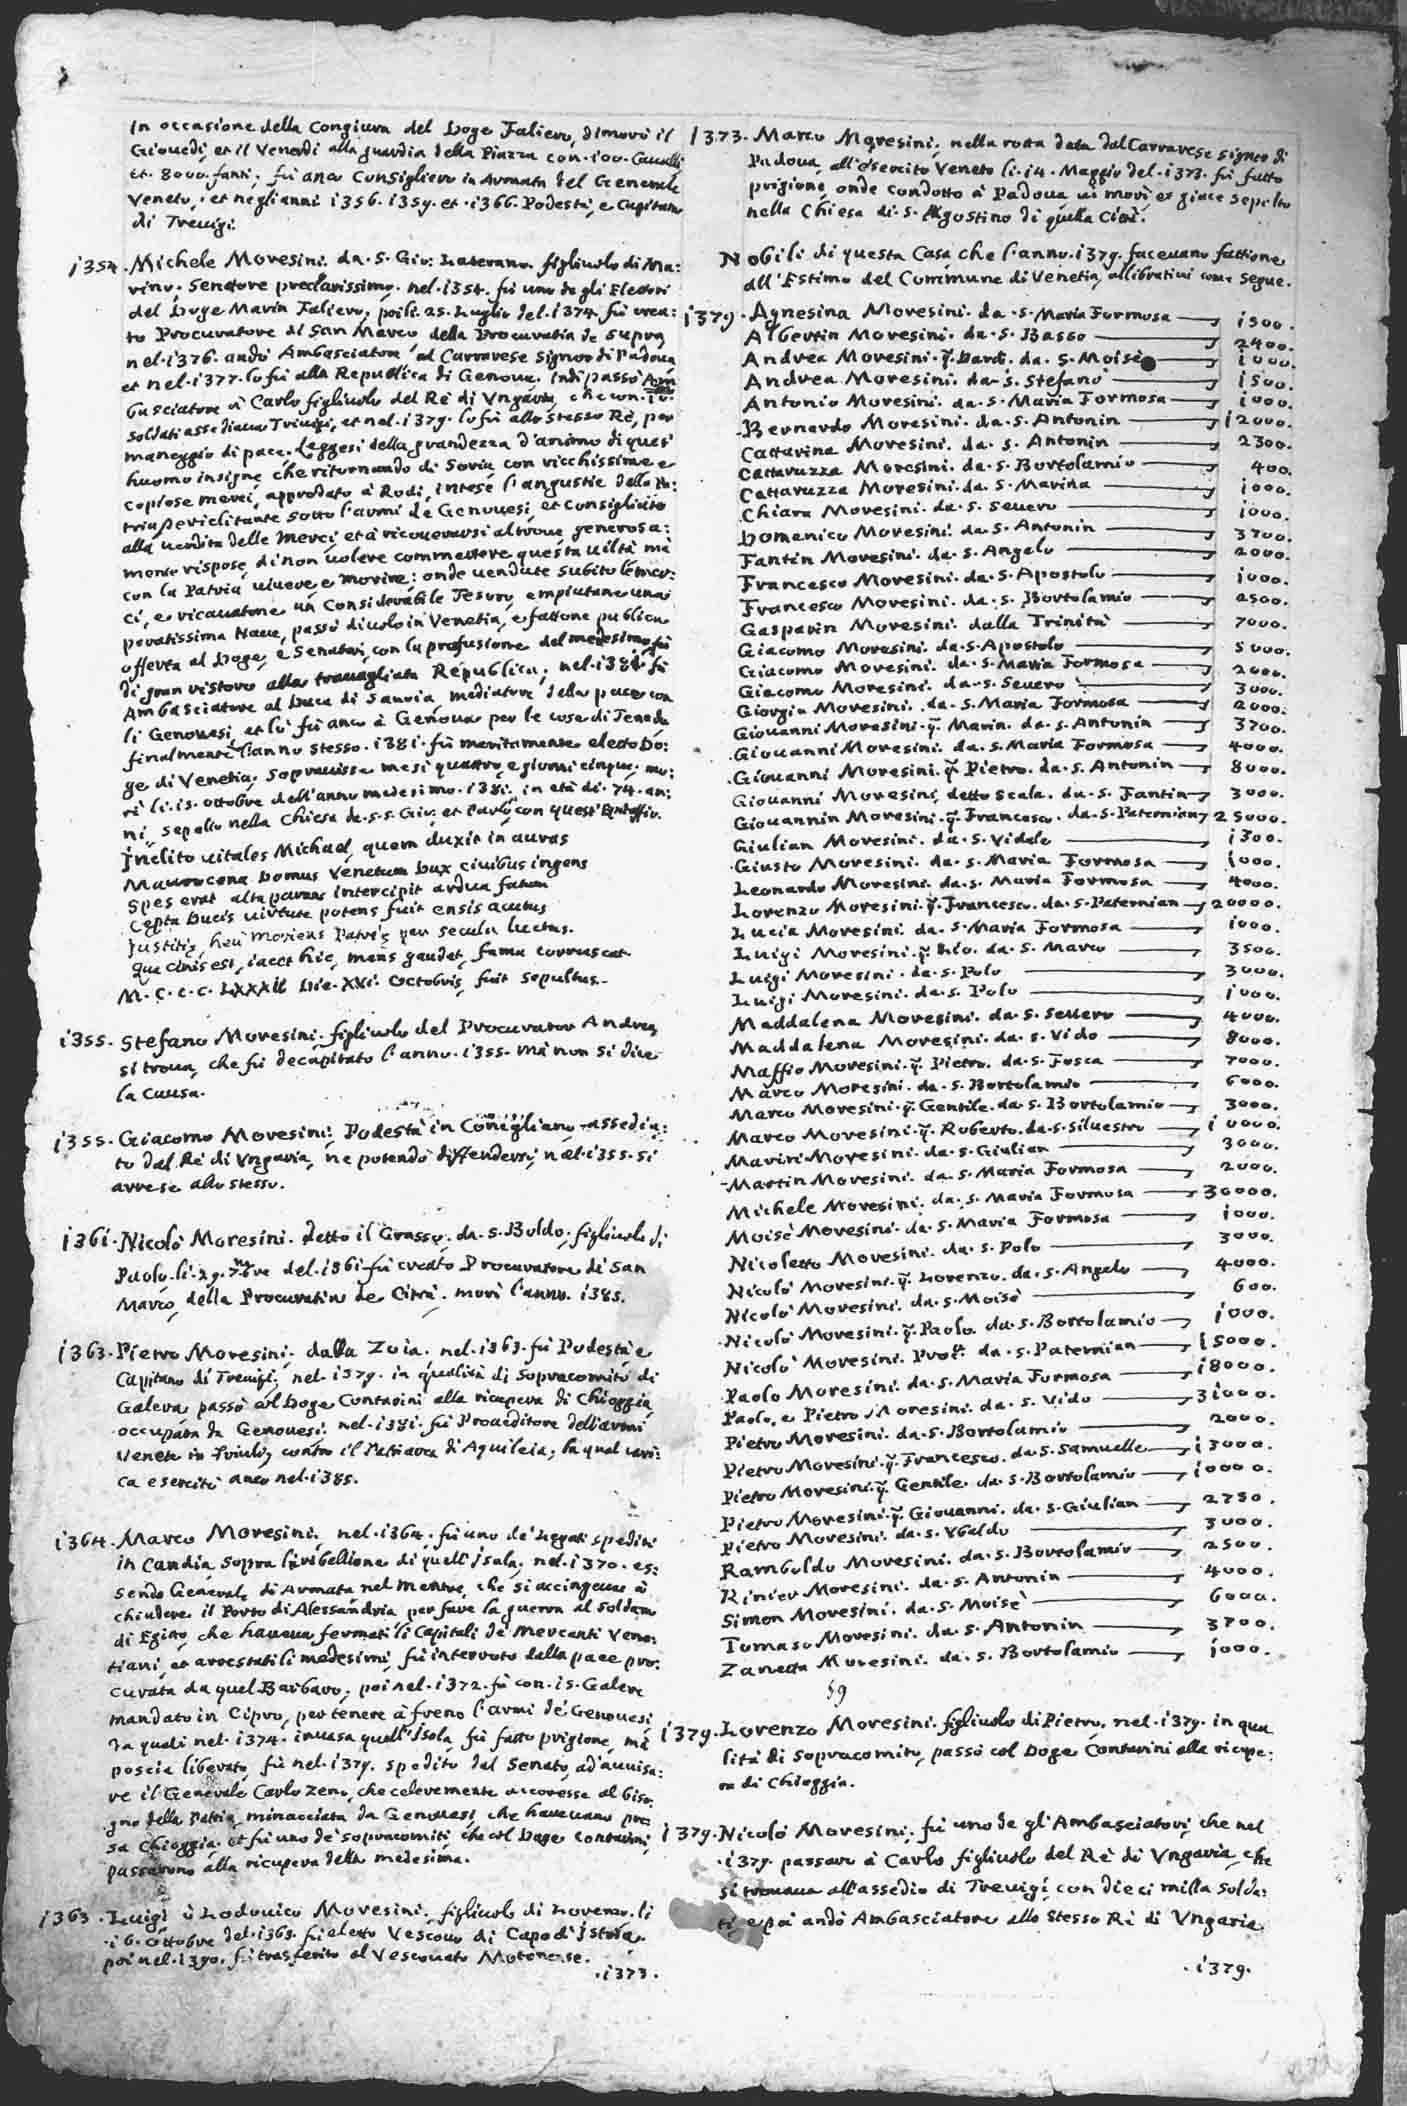 In occasione della Congiura del Doge Faliero, dimorò il
Giouedi, et il Venerdi alla guardia della Piazza con .100. Caualli
et .8000. fanti; fù anco Consigliero in Armata del Generale
Veneto, et negli anni 1356. 1359. et .1366. Podestà, e Capitano
di Treuigi.
1354. Michele Moresini. da .S. Gio: Laterano. figliuolo di Ma:
rino. Senatore preclarissimo. nel .1354. fù uno de gli Elettori
del Doge Marin Faliero, poi li .25. Luglio del .1374. fù crea:
to Procuratore di San Marco della Procuratia de supra,
nel .1376. andò Ambasciatore al Carrarese Signor di Padoua
et nel .1377. lo fù alla Republica di Genoua. Indi passò Am
basciatore à Carlo figliuolo del Rè di Vngaria, che con
soldati assediaua Treuigi, et nel .1379. lo fù allo stesso Rè, per
maneggio di pace. Leggesi della grandezza d'animo di quest'
huomo insigne, che ritornando di Soria con ricchissime e
copiose merci, approdato à Rodi, intese l'angustie della Pa:
tria periclitante sotto l'armi de Genouesi, et consigliato
alla uendita delle Merci, et à ricouerarsi altroue, generosa:
mente rispose, di non uolere commettere questa uiltà mà
con la Patria uiuere, e morire: onde uendute subito le mer:
ci, e ricauatone un Considerabile Tesoro, empiutane una
poratissima Naue, passò di uolo in Venetia, e fattone publica
offerta al Doge, e Senatori, con la profusione del medesimo fù
di gran ristoro alla trauagliata Republica, nel .1381. fù
Ambasciatore al Duca di Sauoia mediatore della pace con
li Genouesi, et lo fù anco à Genoua per le cose di Tenedo
finalmente l'anno stesso .1381. fù meritamente eletto Do:
ge di Venetia, soprauisse mesi quattro, e giorni cinque, mo:
ri li .15. ottobre dell'anno medesimo .1381. in età di .74. an:
ni, sepolto nella Chiesa de .S.S. Gio: et Paulo con quest' Epitaffio.
Inclito uitales Michael, quem duxit in auras
Maurocena Domus Venetum Dux ciuibus ingens
Spes erat alta parans intercipit ardua fatum
Cepta Ducis uirtute potens fuit ensis acutus
Justitię, heù moriens Patrię per secula luctus.
Que cinis est, iacet hic, mens gaudet, fama corruscat.
M. C. C. C. LXXXII Die .XVI. Octobris, fuit sepultus.
1355. Stefano Moresini. figliuolo del Procurator Andrea,
si troua, che fù decapitato l'anno .1355. mà non si dice
la causa.
1355. Giacomo Moresini: Podestà in Conegliano assedia:
to dal Rè di Vngaria, ne potendo diffendersi, nel .1355. si
arrese allo stesso.
1361. Nicolò Moresini. detto il Grasso. da .S. Boldo. figliuolo di
Paolo. li .29. 7bre del .1361. fù creato Procuratore di San
Marco, della Procuratia de Citrà. morì l'anno .1385.
1363. Pietro Moresini. dalla Zoia. nel .1363. fù Podestà e
Capitano di Treuigi, nel .1379. in qualità di sopracomito di
Galera passò col Doge Contarini alla ricupera di Chioggia
occupata da Genouesi. nel .1381. fù Proueditore dell'armi
Venete in Friuli, contro il Patriarca di Aquileia, la qual cari:
ca esercitò anco nel .1385.
1364. Marco Moresini, nel .1364. fù uno de' Legati spediti
in Candia sopra la ribellione di quell' Isola, nel .1370. es:
sendo Generale di Armata nel mentre, che si accingeua à
chiudere il Porto di Alessandria per fare la guerra al Soldano
di Egitto, che haueua fermati li Capitali de Mercanti Vene:
tiani, et arrestatili medesimi, fù interroto dalla pace pro:
curata da quel Barbaro, poi nel .1372. fù con .15. Galere
mandato in Cipro, per tenere à freno l'armi de' Genouesi
da quali nel .1374. inuasa quell' Isola fù fatto prigione, mà
poscia liberato, fù nel .1379. spedito dal Senato, ad auuisa:
re il Generale Carlo Zeno, che celeremente accoresse al biso:
gno della Patria, minacciata da Genouesi, che haueuano pre
sa Chioggia. et fù uno de' sopracomiti, che col Doge Contarini
passarono alla ricupera della medesima.
1363. Luigi ò Lodouico Moresini. figliuolo di Lorenzo. li
.16. Ottobre del .1363. fù eletto Vescouo di Capo d'Istria.
poi nel .1390. fù trasferito al Vescouato Motonense.
.1373.
1373. Marco Moresini, nella rotta data dal Carrarese Signor di
Padoua, all' esercito Veneto li .14. Maggio del .1373. fù fatto
prigione, onde condotto à Padoua ui morì, et giace sepolto
nella Chiesa di .S. Agostino di quella Città.
Nobili di questa Casa che l'anno .1379. faceuano fattione
all' Estimo del Commune di Venetia, allibrati come segue.
1379. Agnesina Moresini. da .S. Maria Formosa 1500.
Albertin Moresini. da .S. Basso 2400.
Andrea Moresini. q. Dardi. da .S. Moisè 1000.
Andrea Moresini. da .S. Stefano 1500.
Antonio Moresini. da .S. Maria Formosa 1000.
Bernardo Moresini. da .S. Antonin 12000.
Cattarina Moresini. da .S. Antonin 2300.
Cattaruzza Moresini. da .S. Bortolamio 400.
Cattaruzza Moresini. da .S. Marina 1000.
Chiara Moresini. da .S. Seuero 1000.
Domenico Moresini. da .S. Antonin 3700.
Fantin Moresini. da .S. Angelo 2000.
Francesco Moresini. da .S. Apostolo 1000.
Francesco Moresini. da .S. Bortolamio 2500.
Gasparin Moresini. dalla Trinità 7000.
Giacomo Moresini. da .S. Apostolo 5000.
Giacomo Moresini. da .S. Maria Formosa 2000.
Giacomo Moresini. da .S. Seuero 3000.
Giorgio Moresini. da .S. Maria Formosa 2000.
Giouanni Moresini. q. Marin. da .S. Antonin 3700.
Giouanni Moresini. da .S. Maria Formosa 4000.
Giouanni Moresini. q. Pietro. da .S. Antonin 8000.
Giouanni Moresini, detto Scala. da .S. Fantin 3000.
Giouannin Moresini. q. Francesco. da .S. Paternian 25000.
Giulian Moresini. da .S. Vidale 1300.
Giusto Moresini. da .S. Maria Formosa 1000.
Leonardo Moresini. da .S. Maria Formosa 4000.
Lorenzo Moresini. q. Francesco. da .S. Paternian 20000.
Lucia Moresini. da .S. Maria Formosa 1000.
Luigi Moresini. q. da .S. Marco 3500.
Luigi Moresini. da .S. Polo 3000.
Luigi Moresini. da .S. Polo 1000.
Maddalena Moresini. da .S. Seuero 4000.
Maddalena Moresini. da .S. Vido 8000.
Maffio Moresini. q. Pietro. da .S. Fosca 7000.
Marco Moresini. da .S. Bortolamio 6000.
Marco Moresini. q. Gentile. da .S. Bortolamio 3000.
Marco Moresini. q. Roberto. da .S. Siluestro 10000.
Marin Moresini. da .S. Giulian 3000.
Martin Moresini. da .S. Maria Formosa 2000.
Michele Moresini. da .S. Maria Formosa 30000.
Moisè Moresini. da .S. Maria Formosa 1000.
Nicoletto Moresini. da .S. Polo 3000.
Nicolò Moresini. q. Lorenzo. da .S. Angelo 4000.
Nicolò Moresini. da .S. Moisè 600.
Nicolò Moresini. q. Paolo. da .S. Bortolamio 1000.
Nicolò Moresini. Pror. da .S. Paternian 15000.
Paolo Moresini. da .S. Maria Formosa 18000.
Paolo, e Pietro Moresini. da .S. Vido 31000.
Pietro Moresini. da .S. Bortolamio 2000.
Pietro Moresini. q. Francesco. da .S. Samuelle 13000.
Pietro Moresini. q. Gentile. da .S. Bortolamio 10000.
Pietro Moresini. q. Giouanni. da .S. Giulian 2750.
Pietro Moresini. da .S. Vbaldo 3000.
Ramboldo Moresini. da .S. Bortolamio 2500.
Rinier Moresini. da .S. Antonin 4000.
Simon Moresini. da .S. Moisè 6000.
Tomaso Moresini. da .S. Antonin 3700.
Zanetta Moresini. da .S. Bortolamio 1000.
59
1379. Lorenzo Moresini. figliuolo di Pietro, nel .1379. in qua
lità di sopracomito, passò col Doge Contarini alla ricupe:
ra di Chioggia.
1379. Nicolò Moresini, fù uno de gl' Ambasciatori, che nel
.1379. passaro à Carlo figliuolo del Rè di Vngaria, che
si trouaua all' assedio di Treuigi, con dieci milla Solda:
ti, e poi andò Ambasciatore allo stesso Rè di Vngaria.
.1379.